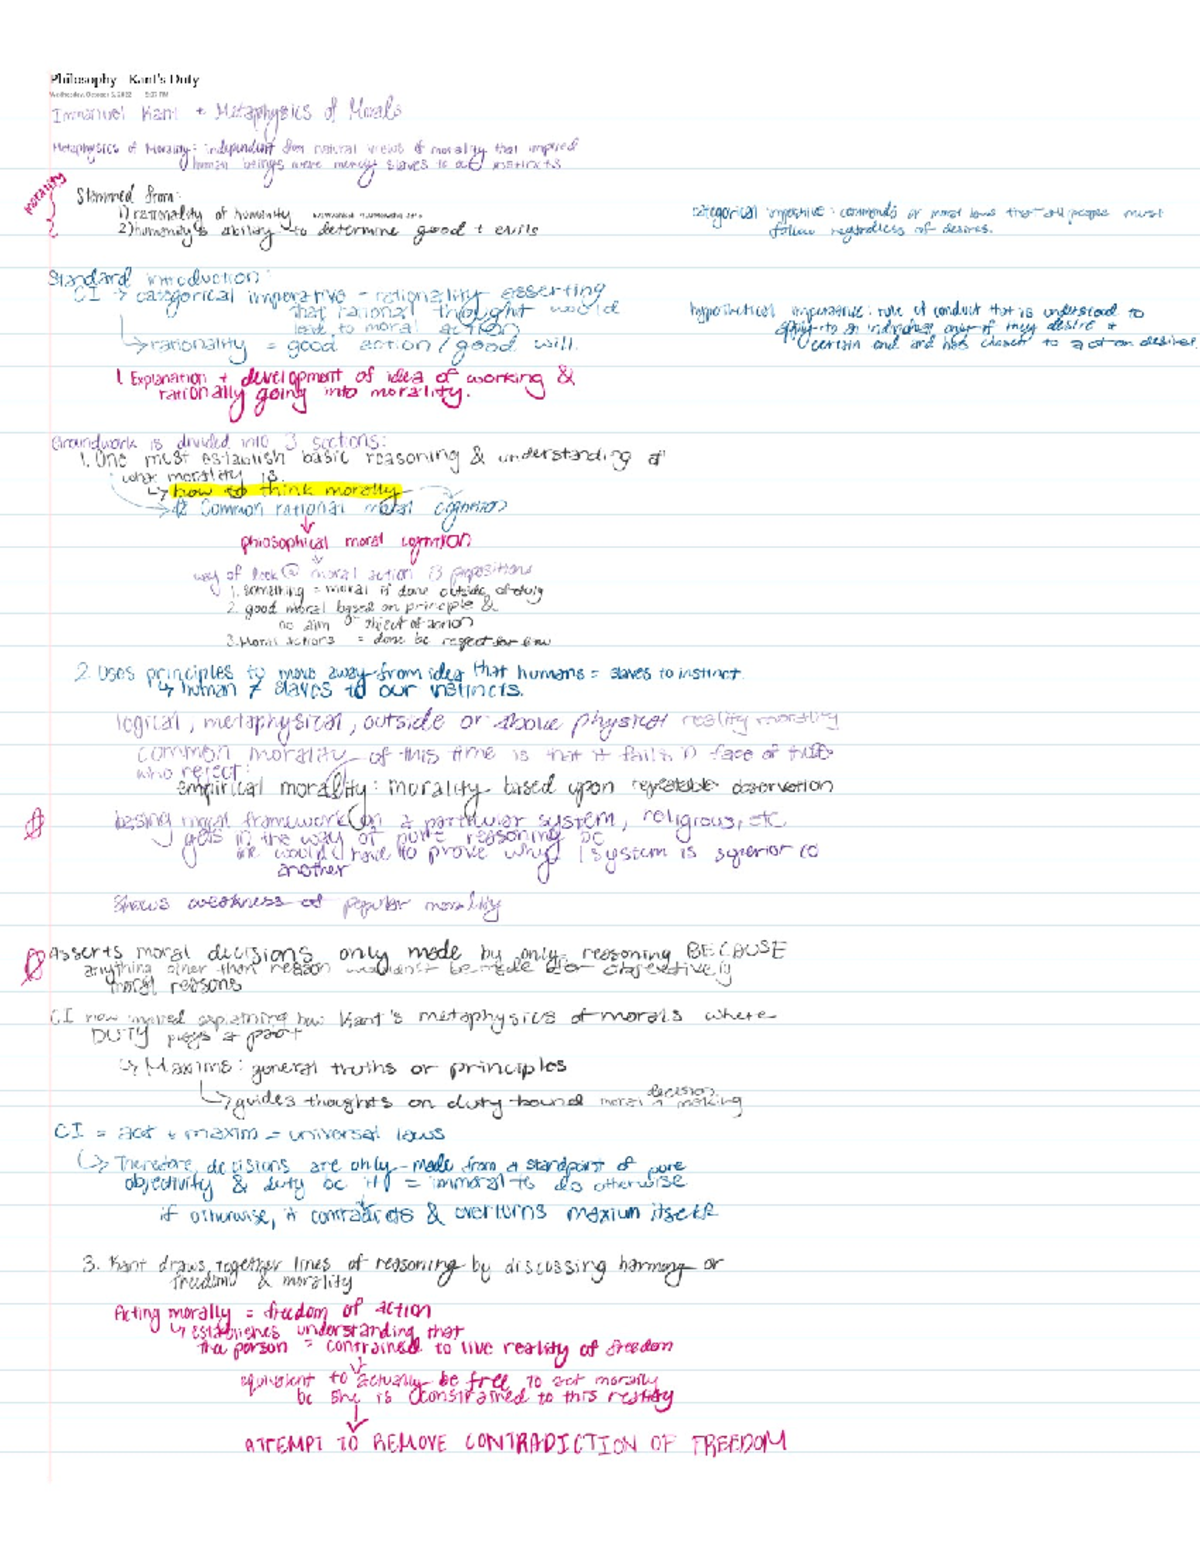 Philosophy - Kant's Duty
Wednesday, October 5, 2022 5:07 PM
Immanuel Kant + Metaphysics of Morals
Metaphysics of Morality: independent from natural views of morality that implied
human beings were merely slaves to our instincts
morality
Stemmed from:
1) rationality of humanity
2) humanity's ability to determine good + evils
categorical imperative: commands or moral laws that all people must
follow regardless of desires.
Standard introduction:
CI → categorical imperative - rationality asserting
that rational thought would
lead to moral action
↳ rationality = good action / good will.
hypothetical imperative: rule of conduct that is understood to
apply to an individual only if they desire a
certain end and has chosen to act on desires
1. Explanation + development of idea of working &
rationally going into morality.
Groundwork is divided into 3 sections:
1. One must establish basic reasoning & understanding of
what morality is.
↳ how to think morally
Common rational moral cognition
↓
phiosophical moral cognition
way of look @ moral action 3 propositions
1. something = moral if done outside of duty
2. good moral based on principle &
no aim or object of action
3. Moral actions = done bc respect for law
2. Uses principles to move away from idea that humans = slaves to instinct.
↳ human ≠ slaves to our instincts.
logical, metaphysical, outside or above physical reality morality
common morality of this time is that it fails in face of those
who reject:
empirical morality: morality based upon repeatable observation
basing moral framework on a particular system, religious, etc
gets in the way of pure reasoning bc
one would have to prove why 1 system is superior to
another
Shows weakness of popular morality
Asserts moral decisions only made by only reasoning BECAUSE
anything other than reason wouldn't be made for objectively
moral reasons
CI now explaining how Kant's metaphysics of morals where
DUTY plays a part
↳ Maxims: general truths or principles
↳ guides thoughts on duty-bound moral decision making
CI = act + maxim = universal laws
↳ Therefore, decisions are only made from a standpoint of pure
objectivity & duty bc it = immoral to do otherwise
if otherwise, it contradicts & overturns maxium itself
3. Kant draws together lines of reasoning by discussing harmony or
freedom & morality
Acting morally = freedom of action
↳ establishes understanding that
the person = contrained to live reality of freedom
↓
equivalent to actually be free to act morally
bc she is constrained to this reality
↓
ATTEMPT TO REMOVE CONTRADICTION OF FREEDOM